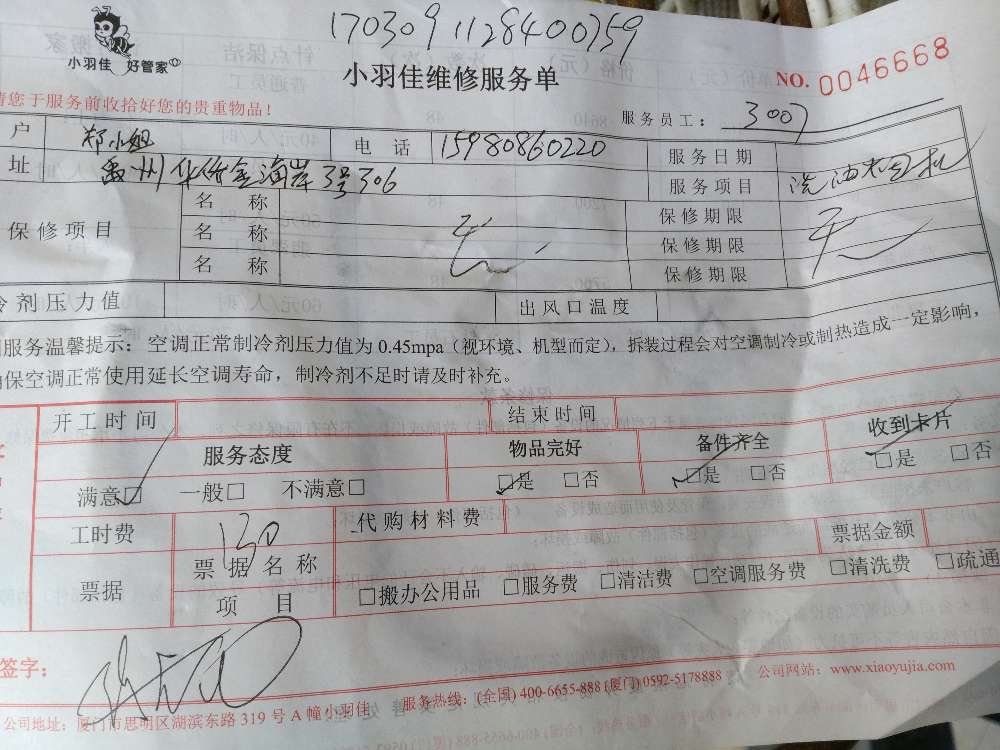 1703091128400759
小羽佳 好管家
小羽佳维修服务单
NO. 0046668
请您于服务前收拾好您的贵重物品！
服务员工： 3007
户 郑小姐 电 话 15980860220 服务日期
址 禹州华侨金海岸3号306 服务项目 洗油烟机
保修项目 名 称 保修期限
名 称 无 保修期限 无
名 称 保修期限
冷剂压力值 出风口温度
服务温馨提示：空调正常制冷剂压力值为 0.45mpa（视环境、机型而定），拆装过程会对空调制冷或制热造成一定影响，
确保空调正常使用延长空调寿命，制冷剂不足时请及时补充。
开工时间 结束时间
服务态度 物品完好 备件齐全 收到卡片
满意□ 一般□ 不满意□ □是 □否 □是 □否 □是 □否
工时费 130 代购材料费 票据金额
票据 票据名称
项 目 □搬办公用品 □服务费 □清洁费 □空调服务费 □清洗费 □疏通
签字：
公司地址：厦门市思明区湖滨东路 319 号 A 幢小羽佳 服务热线：(全国) 400-6655-888 (厦门) 0592-5178888 公司网站：www.xiaoyujia.com